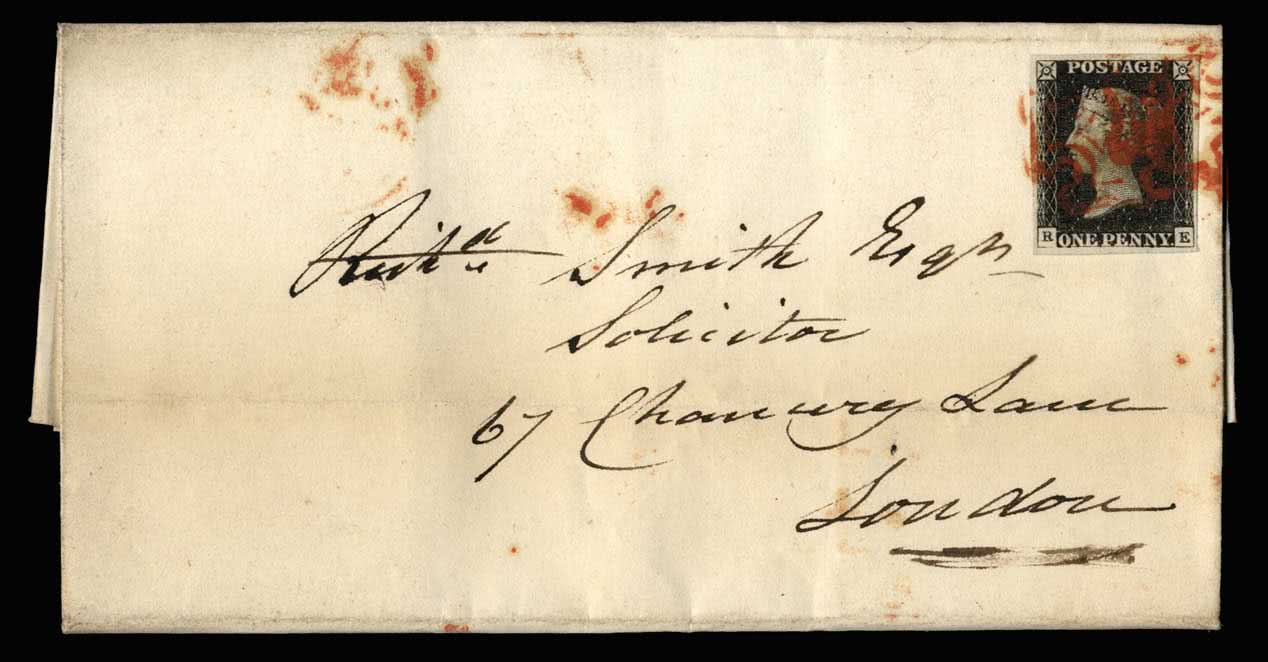 POSTAGE
R ONE PENNY E
Richd Smith Esqr
Solicitor
67 Chancery Lane
London